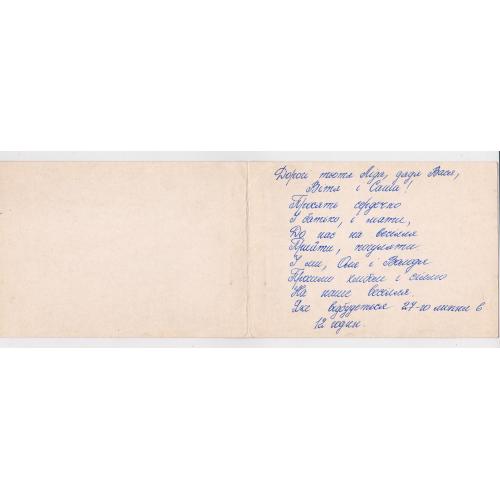 Дорогі тьотя Ліда, дядя Вася,
Вітя і Саша!
Просять сердечно
І батько, і мати,
До нас на весілля
Прийти, погуляти.
І ми, Оля і Володя
Просимо хлібом і сіллю
На наше весілля.
Яке відбудеться 27-го липня в
12 годин.